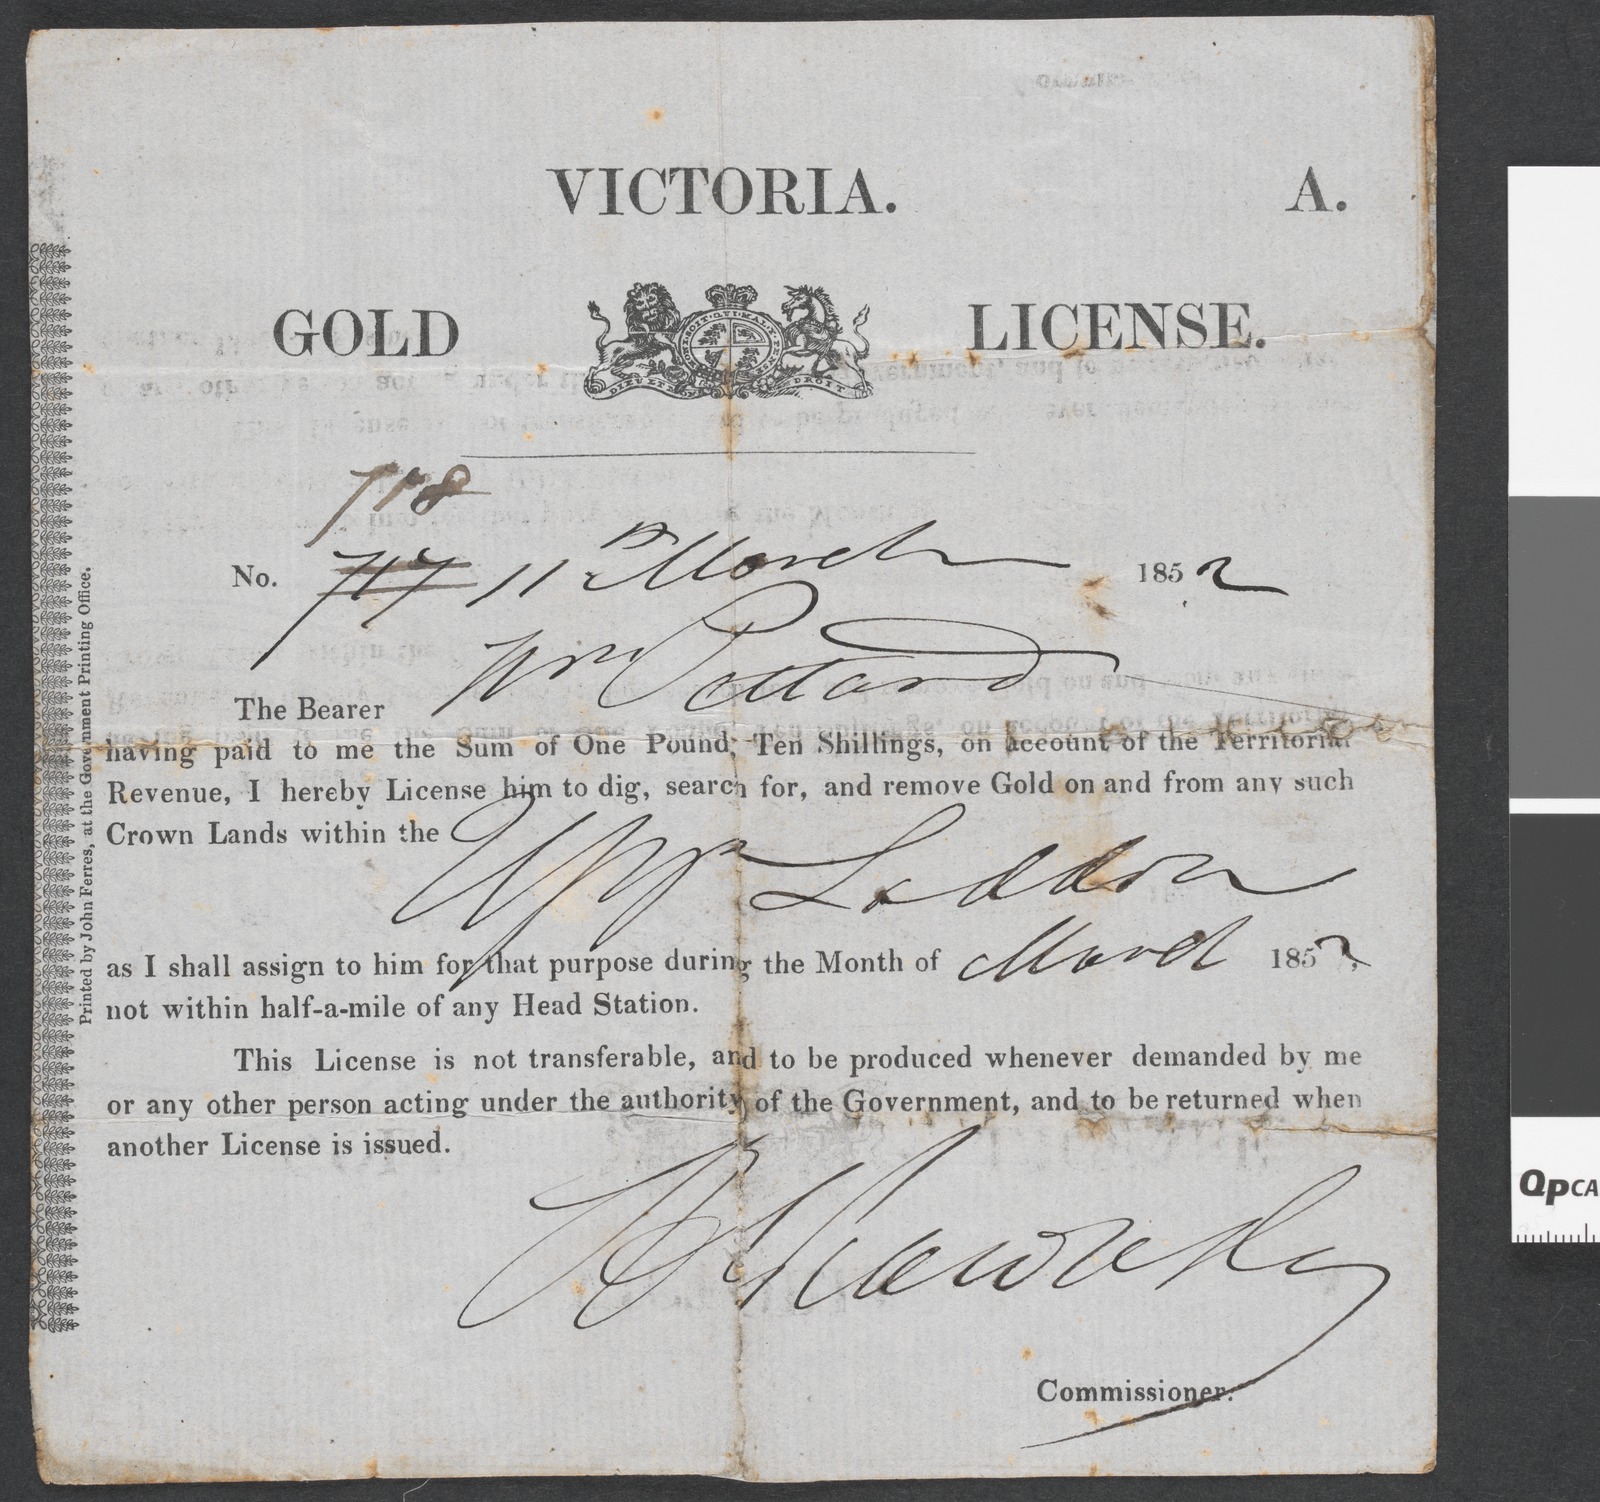 VICTORIA. A.
GOLD LICENSE.
DIEU ET DROIT
718
No. 717 11th March 1852
The Bearer Wm Pollard
having paid to me the Sum of One Pound, Ten Shillings, on account of the Territorial
Revenue, I hereby License him to dig, search for, and remove Gold on and from any such
Crown Lands within the Upper Loddon
as I shall assign to him for that purpose during the Month of March 1852,
not within half-a-mile of any Head Station.
This License is not transferable, and to be produced whenever demanded by me
or any other person acting under the authority of the Government, and to be returned when
another License is issued.
Commissioner.
Printed by John Ferres, at the Government Printing Office.
QPCA